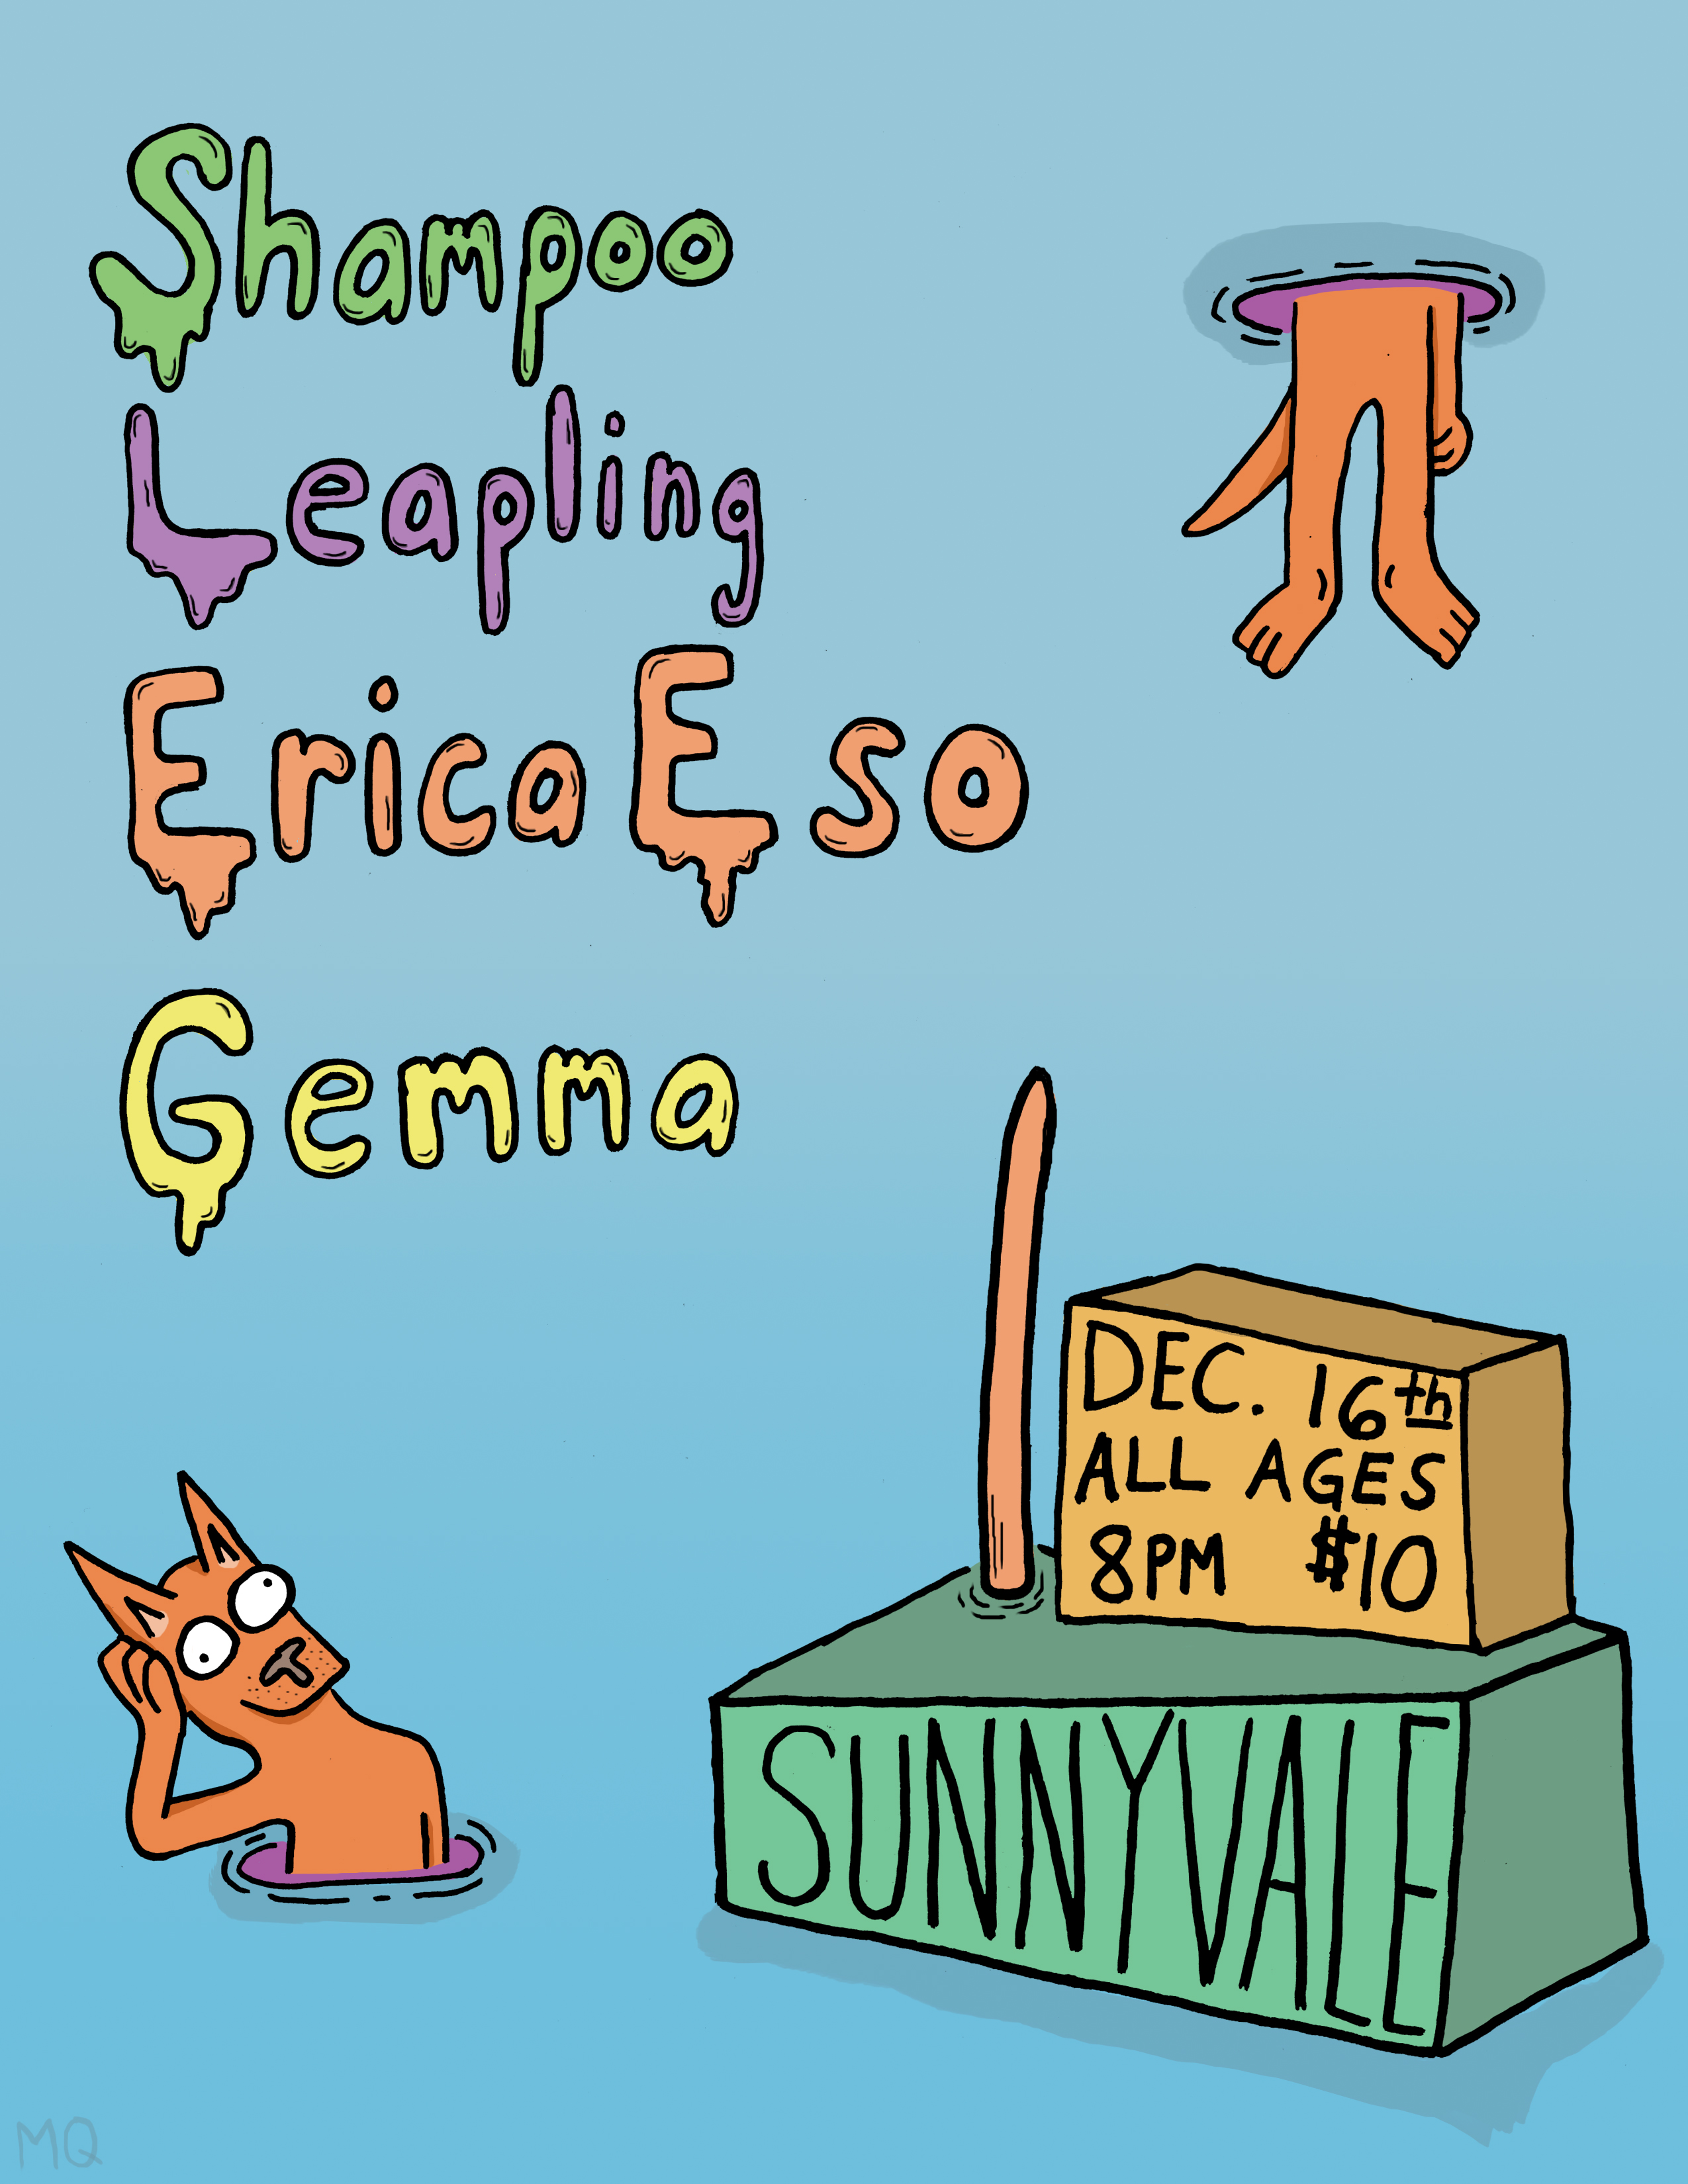 Shampoo
Leapling
Erica Eso
Gemma
DEC. 16th
ALL AGES
8PM $10
SUNNYVALE
MQ